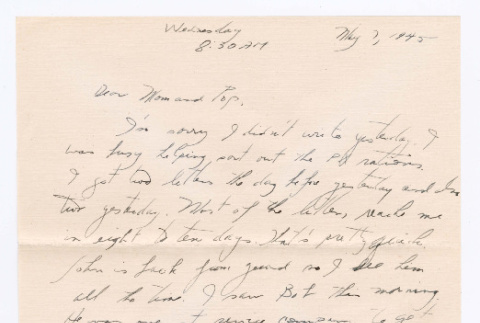 Wednesday May 7, 1945
8:30 AM
Dear Mom and Pop,
I'm sorry I didn't write yesterday. I
was busy helping sort out the PX rations.
I got two letters the day before yesterday and
two yesterday. Most of the letters reach me
in eight to ten days. that's pretty quick.
John is back from guard so I see him
all the time. I saw Bob this morning.
He was at service company to get